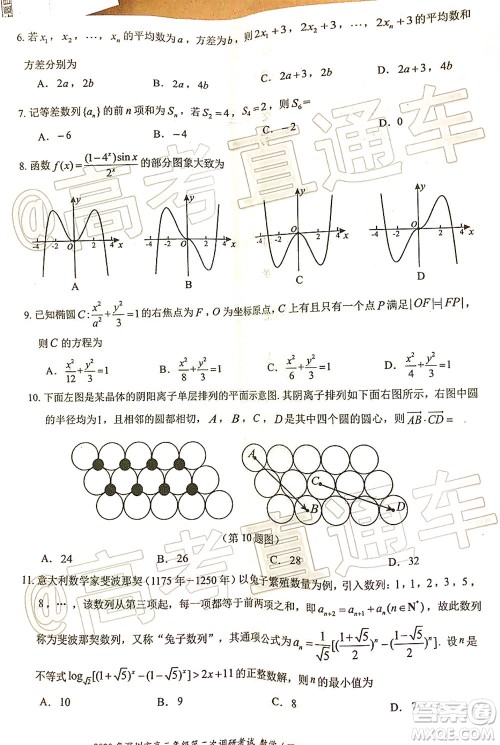 6. 若 x₁, x₂, ⋯, xₙ 的平均数为 a, 方差为 b, 则 2x₁+3, 2x₂+3, ⋯, 2xₙ+3 的平均数和
方差分别为
A. 2a, 2b B. 2a, 4b C. 2a+3, 2b D. 2a+3, 4b
7. 记等差数列{aₙ}的前 n 项和为 Sₙ, 若
A. -6 B. -4 D. 0
8. 函数 f(x)=(1-4ˣ)sin x/2ˣ 的部分图象大致为
y y y y
-4 -2 0 2 4 x
A B C D
9. 已知椭圆 C: x²/a²+y²/3=1 的右焦点为 F, O 为坐标原点, C 上有且只有一个点 P 满足|OF|=|FP|,
则 C 的方程为
A. x²/12+y²/3=1 B. x²/8+y²/3=1 C. x²/6+y²/3=1 D. x²/4+y²/3=1
10. 下面左图是某晶体的阴阳离子单层排列的平面示意图. 其阴离子排列如下面右图所示, 右图中圆
的半径均为1, 且相邻的圆都相切, A, B, C, D 是其中四个圆的圆心, 则 AB·CD =
A B C D
(第10题图)
A. 24 B. 26 C. 28 D. 32
11. 意大利数学家斐波那契 (1175 年-1250 年) 以兔子繁殖数量为例, 引入数列: 1, 1, 2, 3, 5,
8, ⋯, 该数列从第三项起, 每一项都等于前两项之和, 即 aₙ₊₂=aₙ₊₁+aₙ(n∈N*), 故此数列称
为斐波那契数列, 又称“兔子数列”, 其通项公式为 aₙ=1/√5[((1+√5)/2)ⁿ-((1-√5)/2)ⁿ]. 设 n 是
不等式 log√2[(1+√5)ˣ-(1-√5)ˣ]>2x+11 的正整数解, 则 n 的最小值为
A. 10 B. 9 C. 8 D. 7
@高考直通车
@高考直通车
答案圈
MXQE.COM